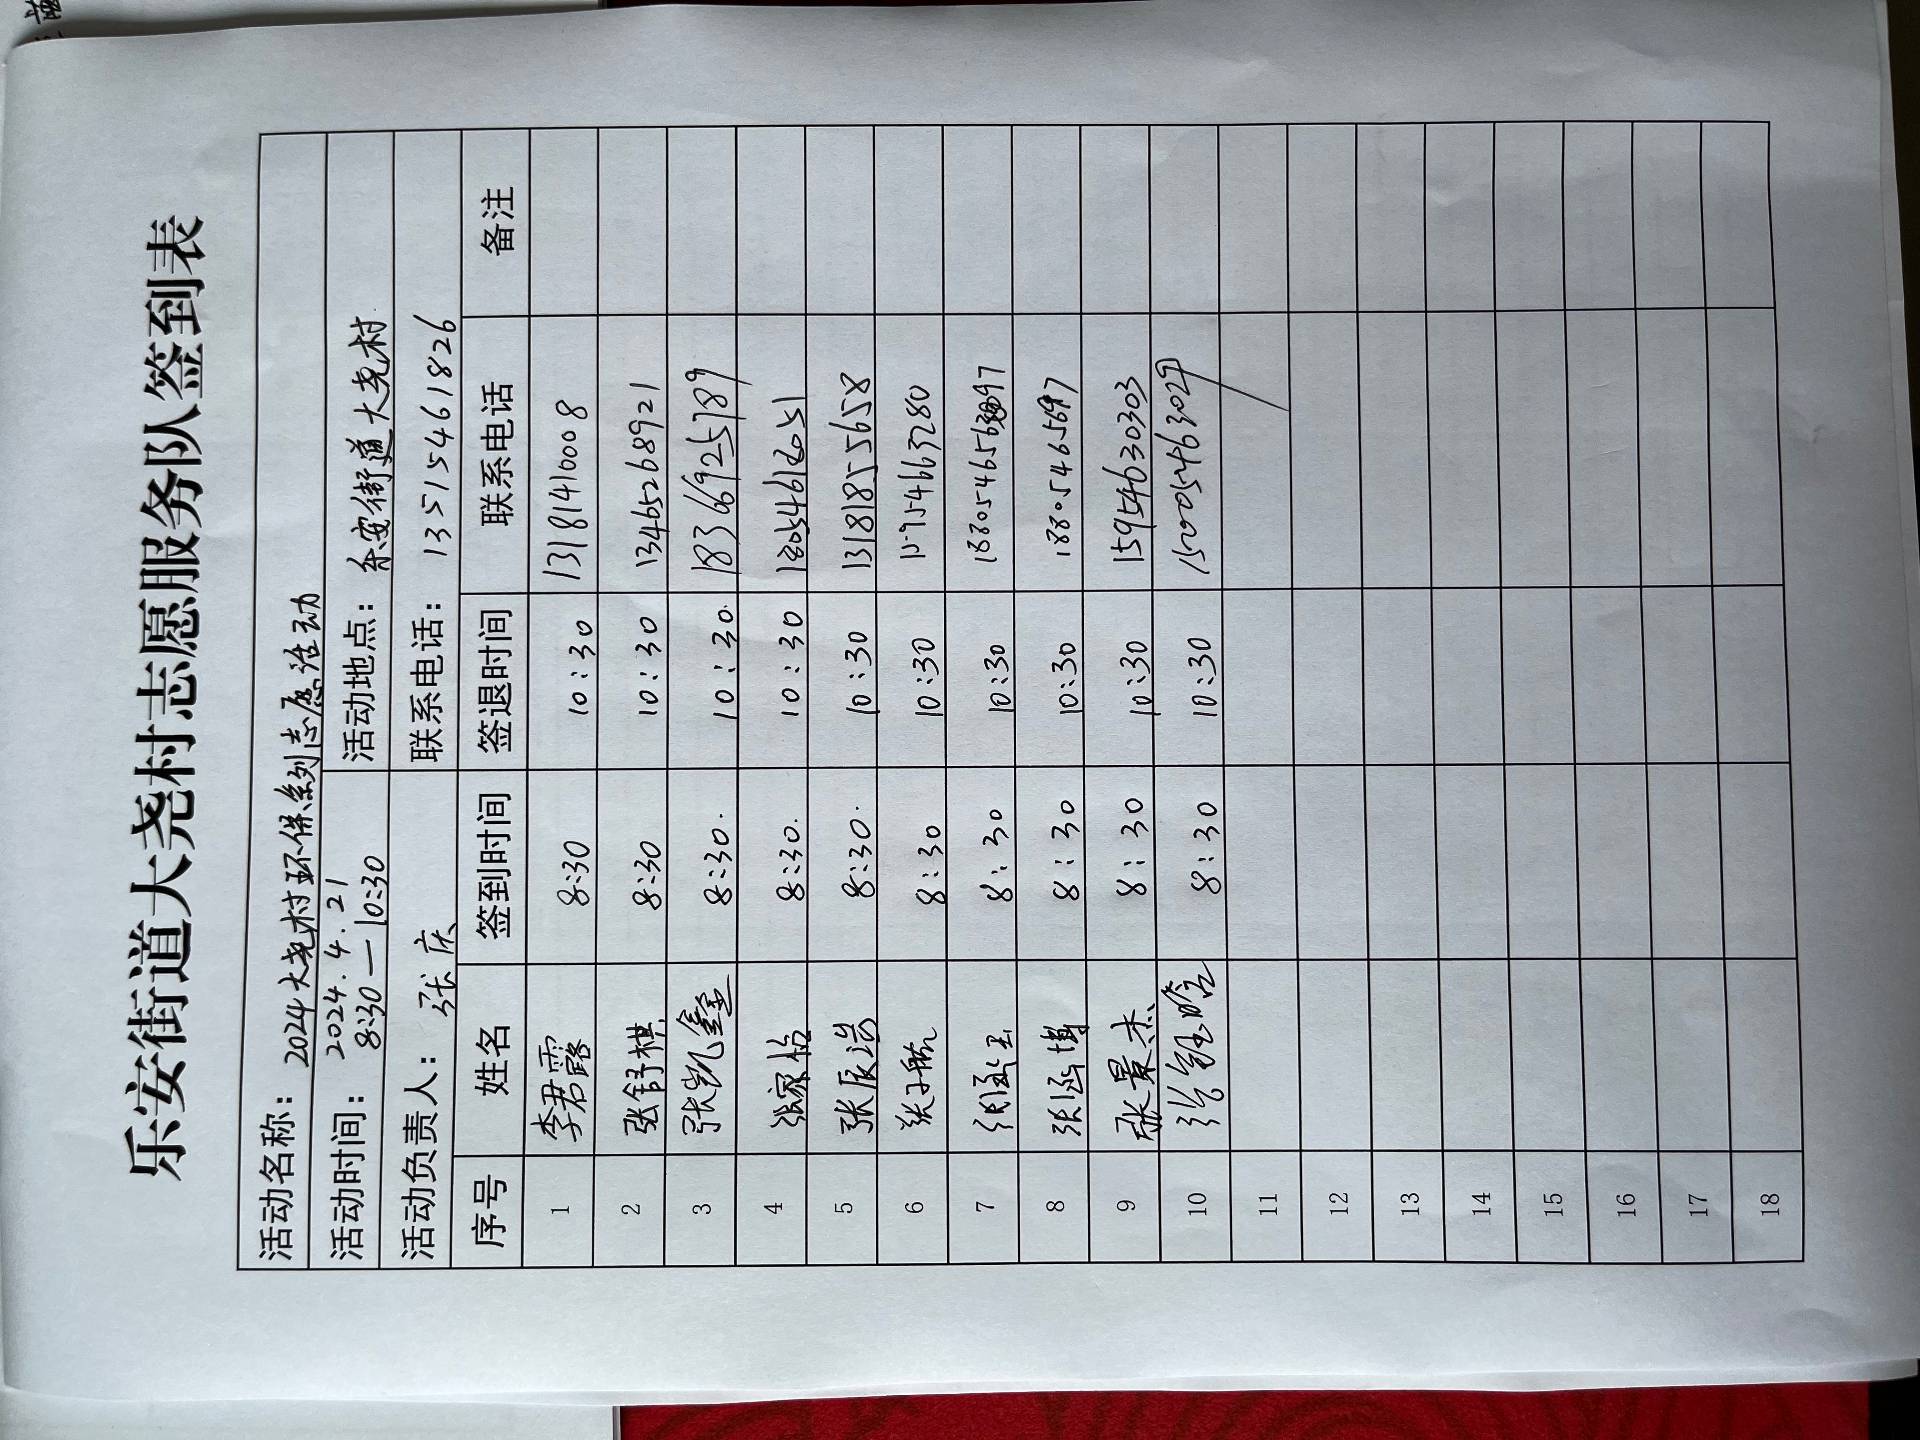 乐安街道大尧村志愿服务队签到表
活动名称：2024大尧村环保系列志愿活动
活动时间：2024.4.21 8:30—10:30 活动地点：乐安街道大尧村
活动负责人：张庆 联系电话：13515461826
序号 姓名 签到时间 签退时间 联系电话 备注
1 李君露 8:30 10:30 13181416008
2 张舒棋 8:30 10:30 13465268921
3 张凯鑫 8:30. 10:30. 18366925789
4 张家怡 8:30. 10:30
5 张辰浩 8:30. 10:30 13181855658
6 张子航 8:30 10:30
7 8:30 10:30
8 张函博 8:30 10:30 18805465697
9 张景杰 8:30 10:30 15954630303
10 张钰晗 8:30 10:30
11
12
13
14
15
16
17
18